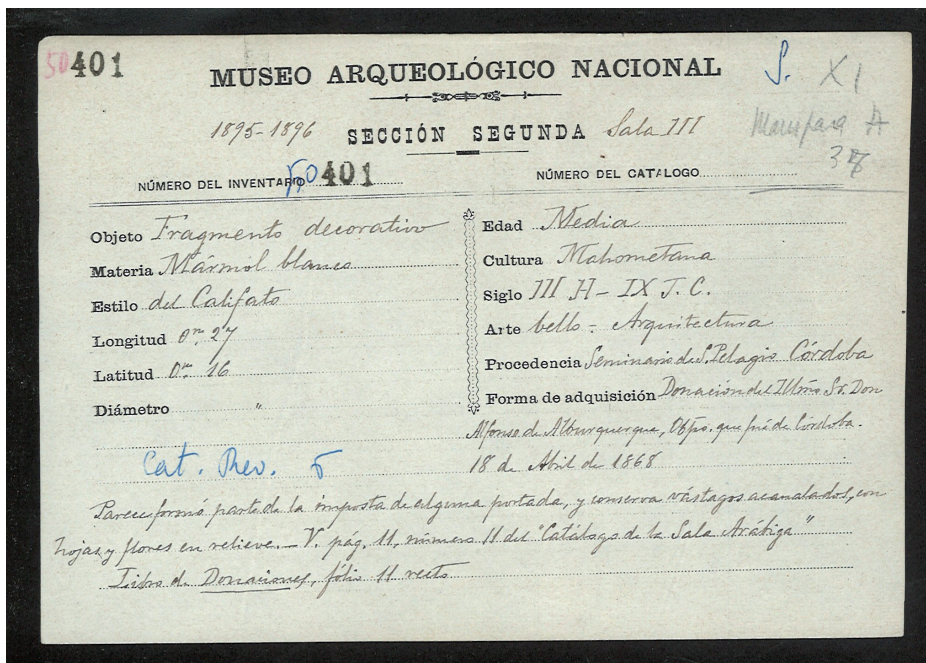 50401
MUSEO ARQUEOLÓGICO NACIONAL
S. XI
1895-1896 SECCIÓN SEGUNDA Sala III
Mampara A
NÚMERO DEL INVENTARIO 50401 NÚMERO DEL CATÁLOGO
Objeto Fragmento decorativo
Materia Mármol blanco
Estilo del Califato
Longitud 0m. 27
Latitud 0m. 16
Diámetro "
Edad Media
Cultura Mahometana
Siglo III H - IX J. C.
Arte bello - Arquitectura
Procedencia Seminario de S. Pelagio Córdoba
Forma de adquisición Donación del Illmo. Sr. Don
Alfonso de Alburquerque, Obpo. que fué de Córdoba.
18 de Abril de 1868
Cat. Rev. 5
Parece formó parte de la imposta de alguna portada, y conserva vástagos acanalados, con
hojas y flores en relieve. — V. pág. 11, número 11 del "Catálogo de la Sala Arábiga"
Libro de Donaciones, fólio 11 recto